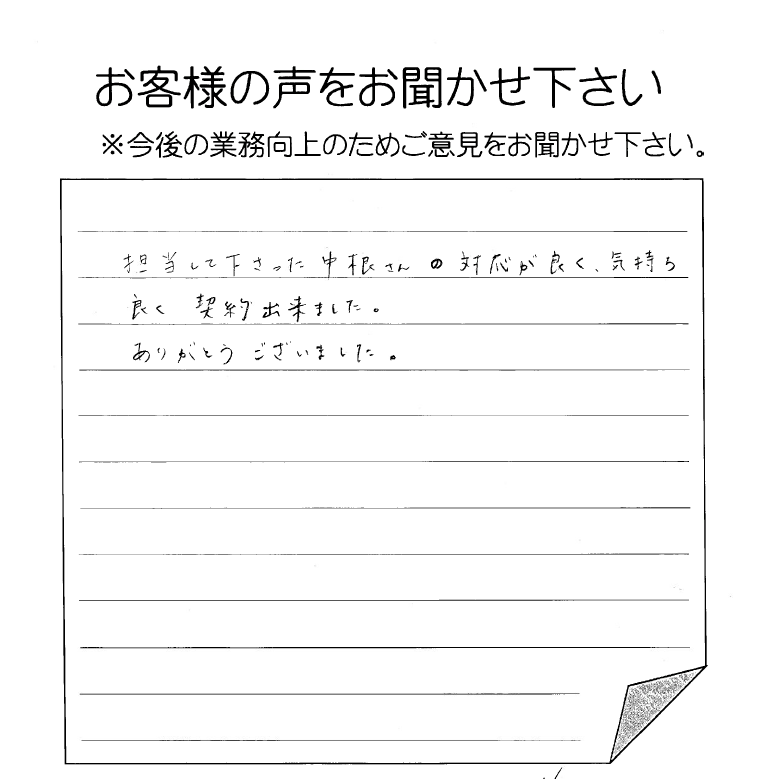 お客様の声をお聞かせ下さい
※今後の業務向上のためご意見をお聞かせ下さい。
担当して下さった中根さんの対応が良く、気持ち
良く 契約出来ました。
ありがとうございました。